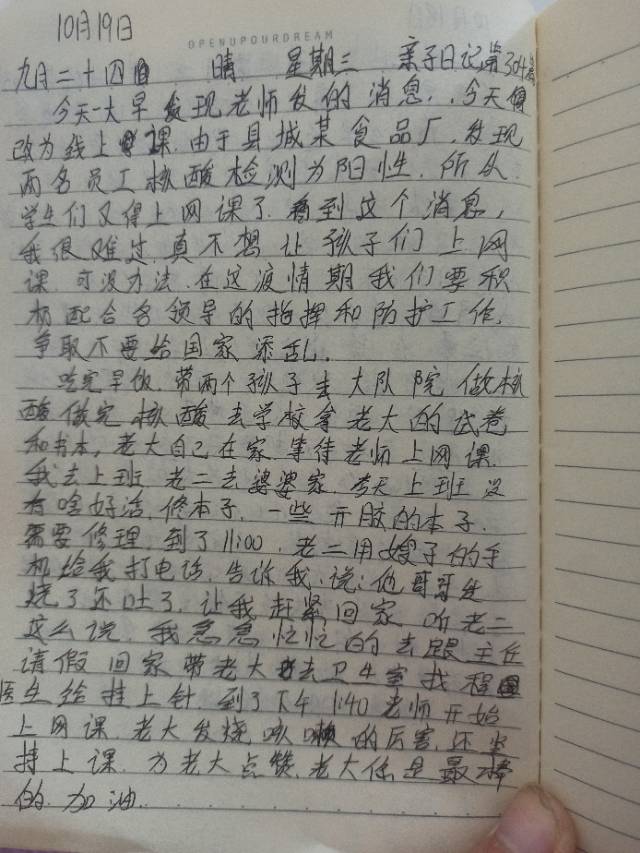 10月19日
OPENUPOURDREAM
九月二十四 晴 星期三 亲子日记第304
今天一大早发现老师发的消息,今天
改为线上课.由于县城某食品厂,发现
两名员工核酸检测为阳性.所以
学生们又得上网课了.看到这个消息,
我很难过.真不想让孩子们上网
课.可没办法.在这疫情期我们要积
极配合各领导的指挥和防护工作.
争取不要给国家添乱.
吃完早饭.带两个孩子去大队院做核
酸.做完核酸去学校拿老大的试卷
和书本,老大自己在家等待老师上网课.
我去上班.老二去婆婆家.今天上班没
有啥好活.修本子.一些开胶的本子.
需要修理.到了11:00.老二用嫂子的手
机给我打电话.告诉我:说:他哥哥发
烧了还吐了.让我赶紧回家.听老二
这么说.我急急忙忙的去跟主任
请假.回家带老大去卫生室找程
医生给挂上针.到了下午1:40老师开始
上网课.老大发烧咳嗽的厉害.还坚
持上课.为老大点赞.老大你是最棒
的.加油.